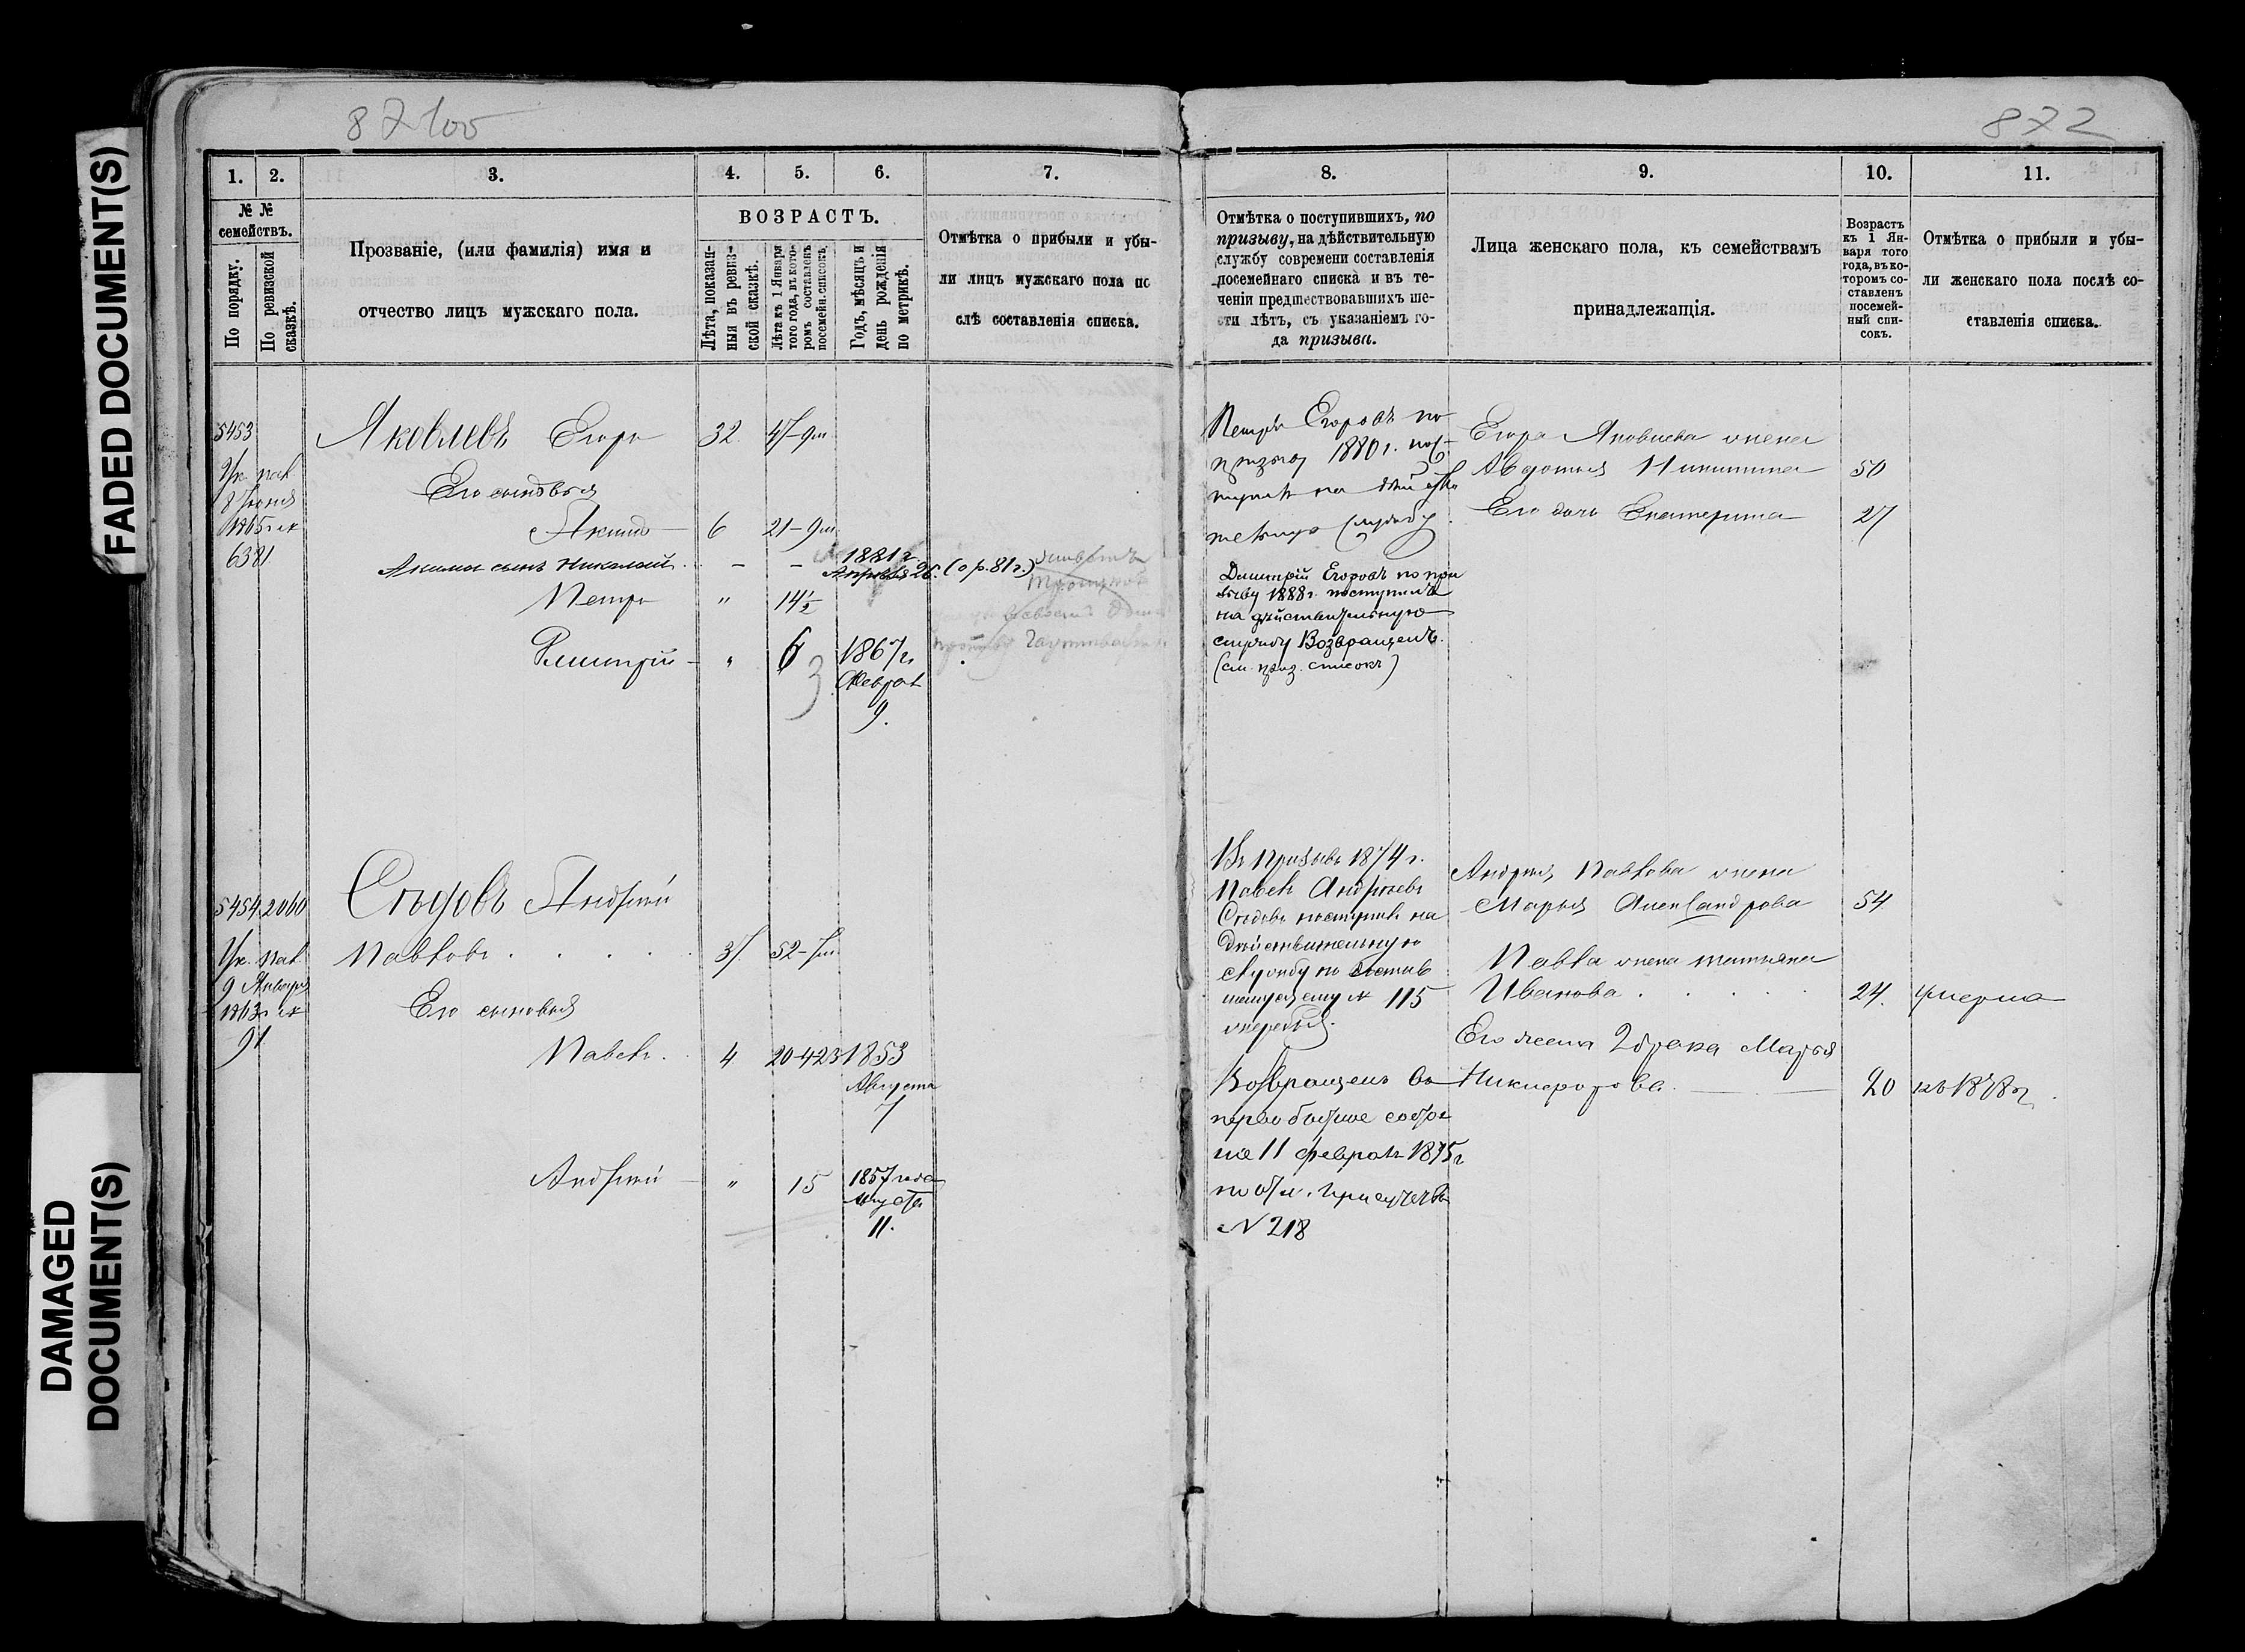 FADED DOCUMENT(S)
DAMAGED
DOCUMENT(S)
872
1. 2. 3. 4. 5. 6. 7.
№ №
семействъ.
По порядку.
По ревизской
сказкѣ.
Прозваніе, (или фамилія) имя и
отчество лицъ мужскаго пола.
ВОЗРАСТЪ.
Лѣта, показан-
ныя въ ревиз-
ской сказкѣ.
Лѣта къ 1 Января
того года, въ кото-
ромъ составленъ
посемейн. списокъ.
Годъ, мѣсяцъ и
день рожденія
по метрикѣ.
Отмѣтка о прибыли и убы-
ли лицъ мужскаго пола по
слѣ составленія списка.
5453
8 Іюня
1865 г. №
6381
Яковлевъ Егоръ 32 47-9м
Его сыновья
Якимъ 6 21-9м
Акима сынъ Николай - - 1881 г. Апрѣля 26. (о р. 81 г.)
Петръ " 14½
Дмитрій " 6 3 1867 г.
Феврал
9.
5454 2060
Сѣдовъ Андрей
9 Января
1863 г. №
91
Павловъ 37 52-7м
Его сыновья
Павелъ 4 20-4 23 1853
Августа
7
Андрей " 15 1857 года
11.
8. 9. 10. 11.
Отмѣтка о поступившихъ, по
призыву, на дѣйствительную
службу современи составленія
посемейнаго списка и въ те-
ченіи предшествовавшихъ ше-
сти лѣтъ, съ указаніемъ го-
да призыва.
Лица женскаго пола, къ семействамъ
принадлежащія.
Возрастъ
къ 1 Ян-
варя того
года, въ ко-
торомъ со-
ставленъ
посемей-
ный спи-
сокъ.
Отмѣтка о прибыли и убы-
ли женскаго пола послѣ со-
ставленія списка.
Петръ Егоровъ по
призыву 1880 г. пос-
тупилъ на дѣйств
тельную службу.
Дмитрій Егоровъ по при
зыву 1888 г. поступилъ
на дѣйствительную
службу Возвращенъ.
(см. приз. списокъ)
Егора Яковлева жена
Авдотья Никитина 50
Его дочь Екатерина 27
Въ призывъ 1874 г.
Павелъ Андреевъ
Сѣдовъ поступилъ на
дѣйствительную
службу по
№ 115
жеребья.
Возвращенъ въ
первобытное состоя
ніе 11 феврал 1875 г
по
№ 218
Андрея Павлова жена
Марья Александрова 54
Павла жена Татьяна
Иванова 24. умерла
Его жена 2 брака Марья
Никифорова 20 къ 1878 г.